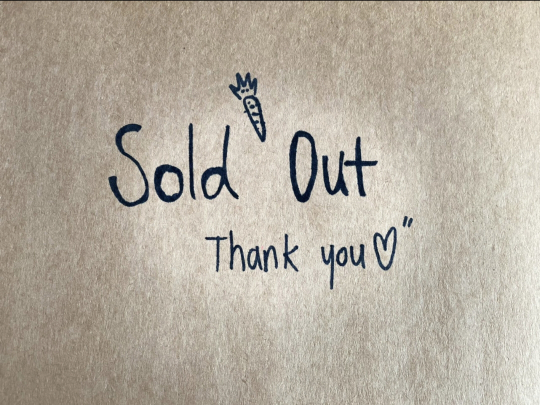 Sold Out
Thank you♡"